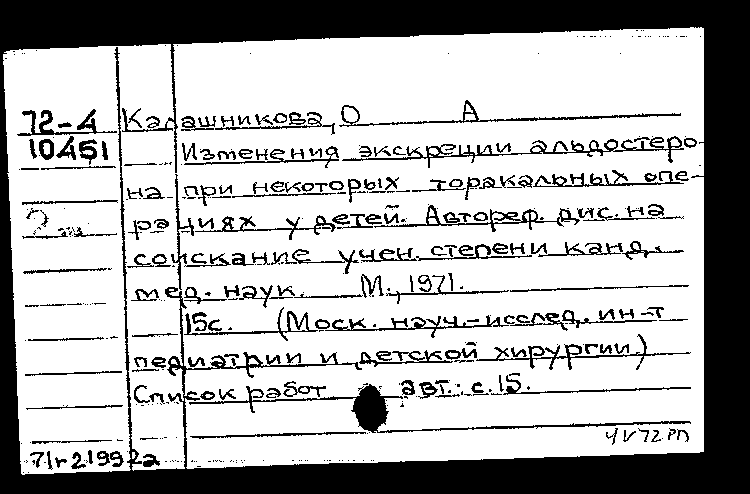 72-4 Калашникова, О А
10451 Изменения экскреции альдостеро-
на при некоторых торакальных опе-
рациях у детей. Автореф. дис. на
соискание учен. степени канд.
мед. наук. М., 1971.
15с. (Моск. науч.-исслед. ин-т
педиатрии и детской хирургии.)
Список работ авт.: с. 15.
4 V 72 РП
71г21992а